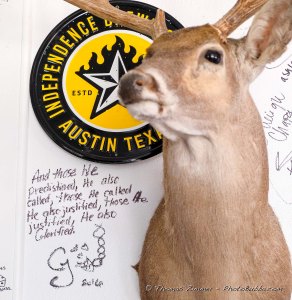 INDEPENDENCE BR
ESTD
AUSTIN TEXA
And those He
predestined, He also
called, those He called
He also justified, those He
justified, He also
Glorified.
© Thomas Zimmer - PhotoBubba.com